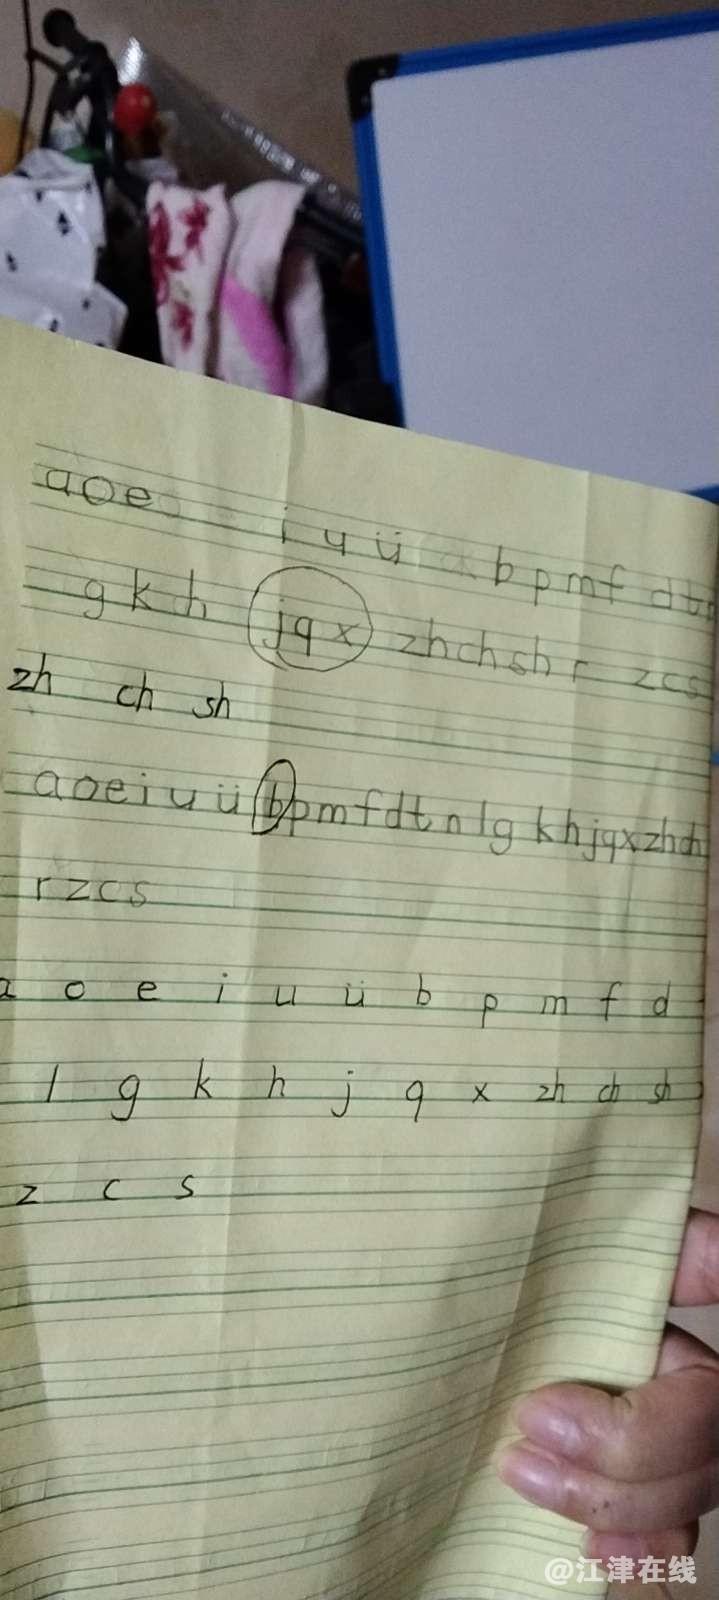 a o e i u ü b p m f d t
g k h j q x zh ch sh r z c s
zh ch sh
a o e i u ü b p m f d t n l g k h j q x zh ch
r z c s
a o e i u ü b p m f d
l g k h j q x zh ch sh
z c s
@江津在线